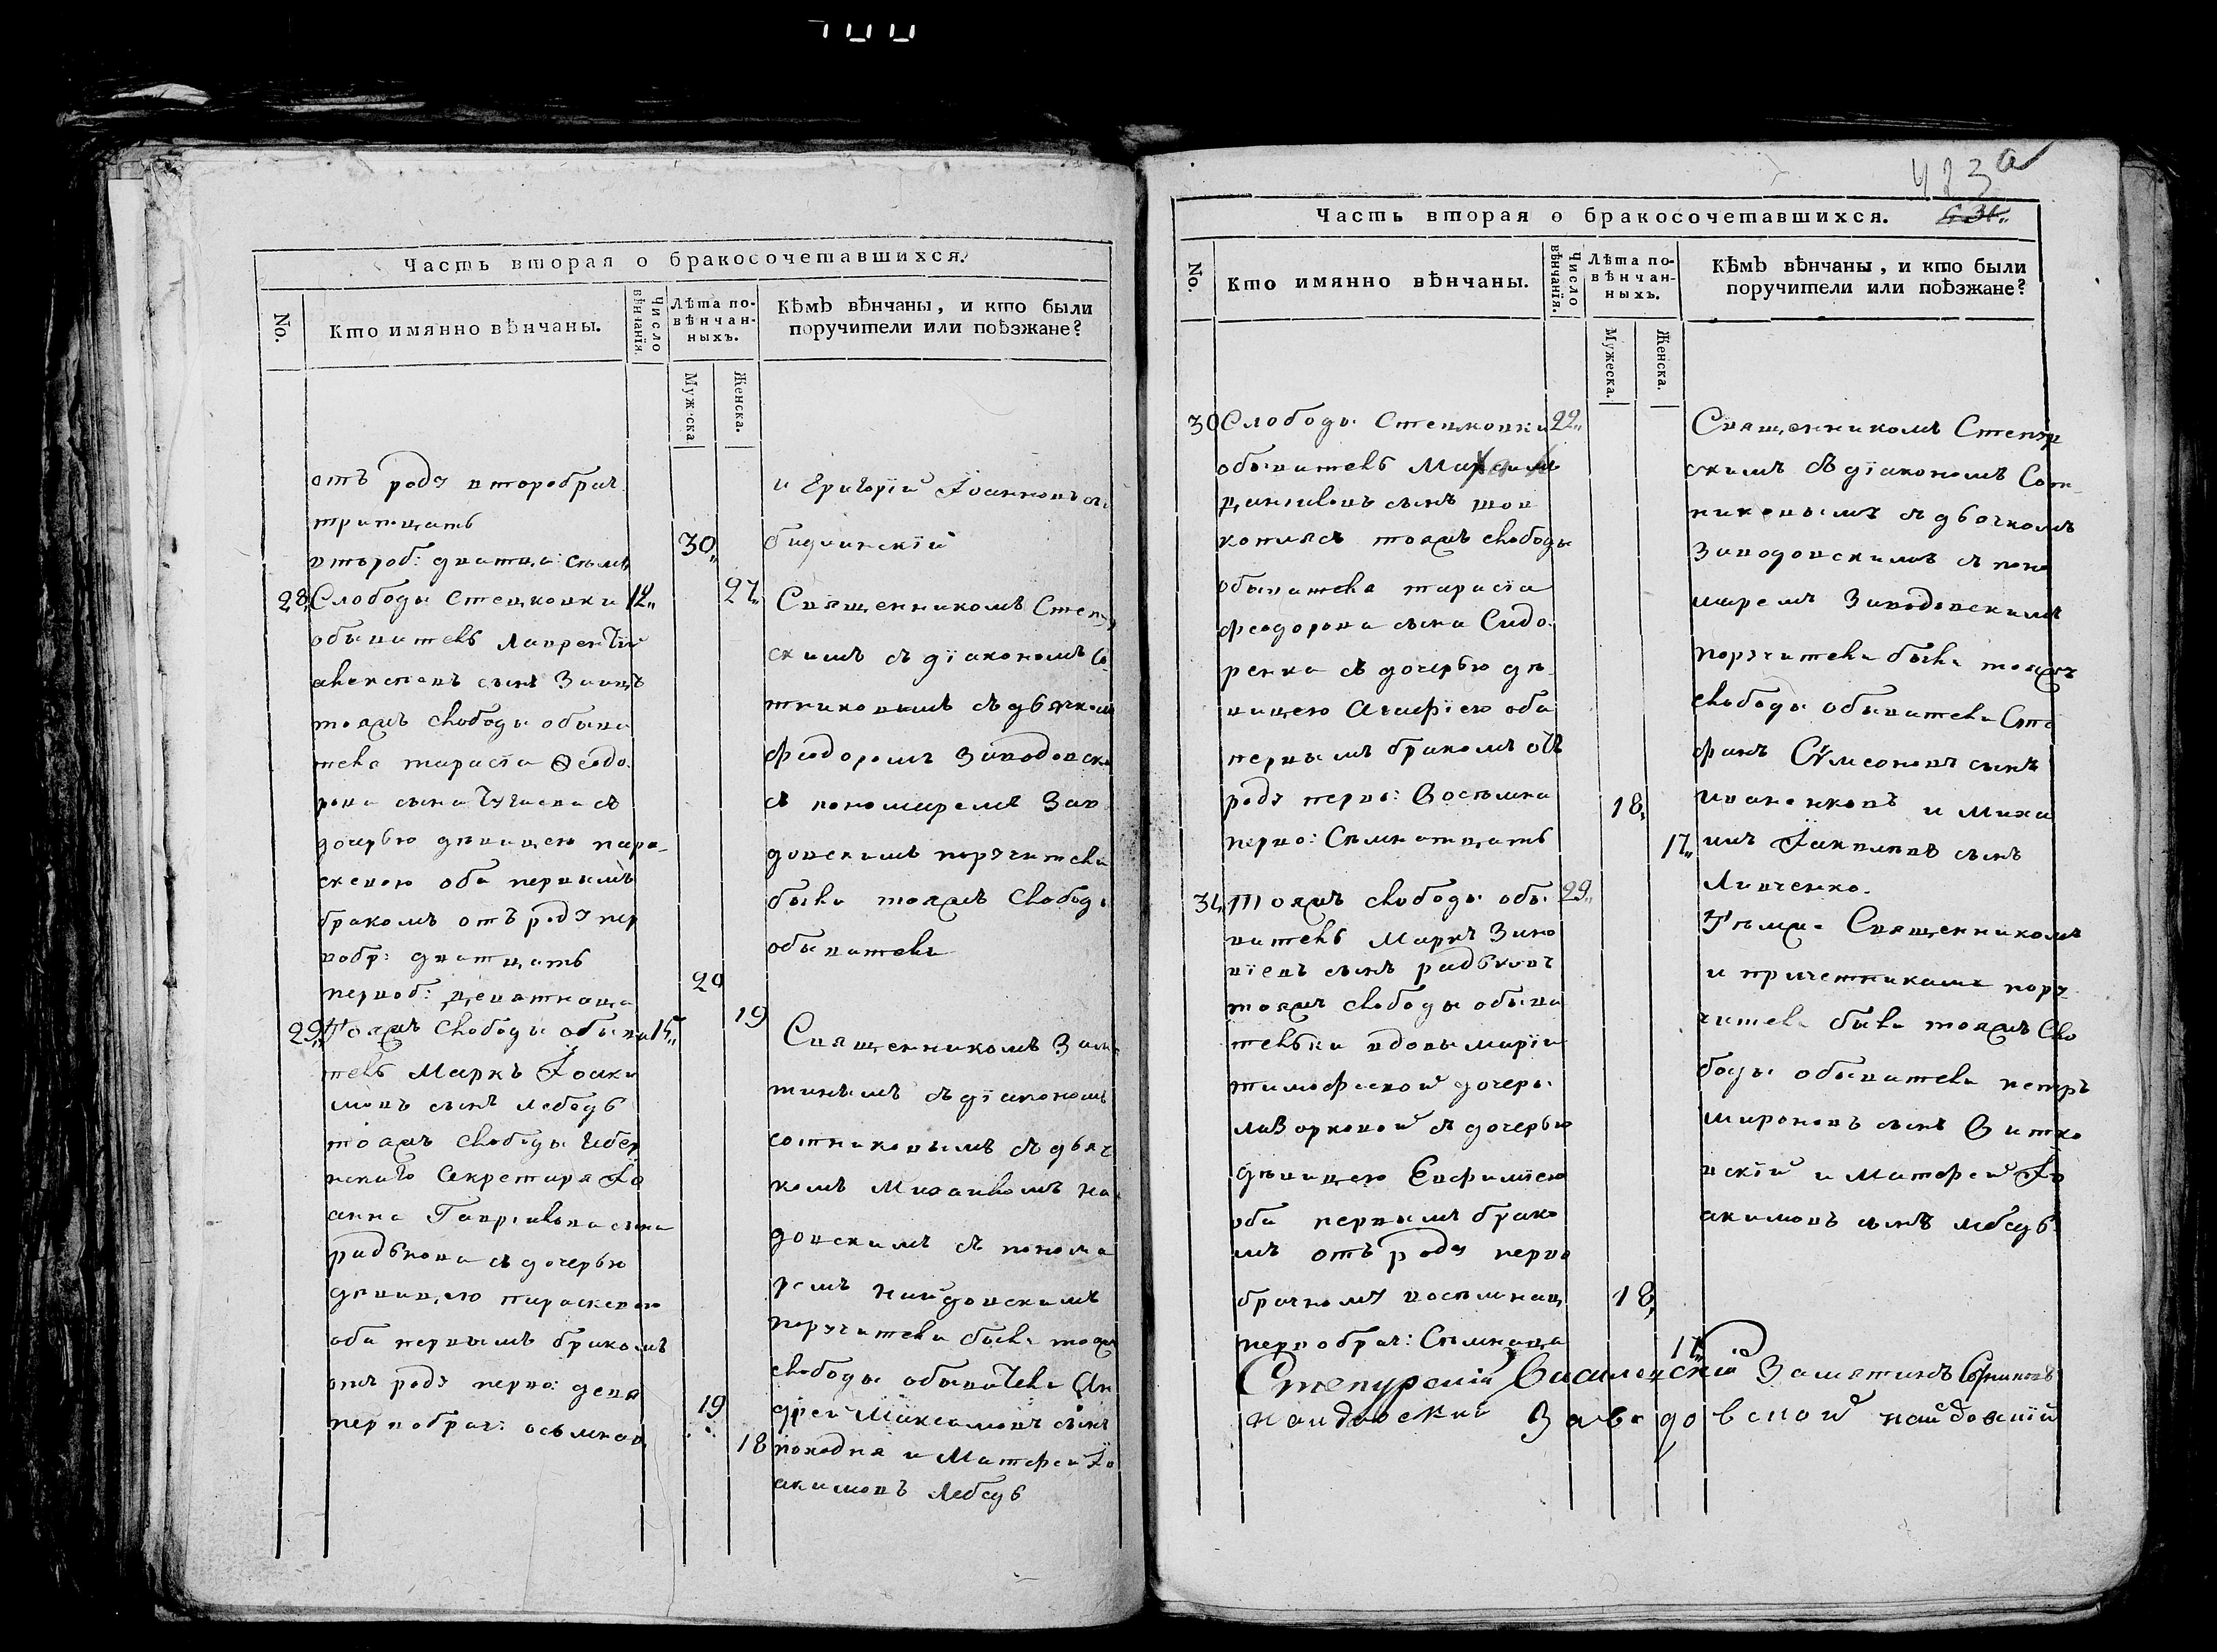 Часть вторая о бракосочетавшихся.
No.
Кто имянно вѣнчаны.
Число вѣнчанїя.
Лѣта по-
вѣнчан-
ныхъ.
Мужеска.
Женска.
Кѣмъ вѣнчаны, и кто были
поручители или поѣзжане?
отъ роду второбрач
тритцать
30,,
второб: дватца: семь
27,,
и Григорїй Іоанновъ
28,, Слободы Стецковки 12,,
обыватель Лаврентїй
Алексеевъ сынъ Заецъ
тояжъ слободы обыва
теля тарасїа Ѳеодо
рова сына
дочерью девицею пара-
скевою оба первымъ
бракомъ отъ роду пер
вобр: дватцать
20
первоб: девятнац
19
Священникомъ Степу
скимъ съ дїакономъ Со
тниковымъ съ дьячком
феодоромъ Заводовск
съ пономаремъ Заво
довскимъ поручители
были тояжъ слободы
обыватели
29,, Тояжъ слободы обыва 15,,
тель Маркъ Іоаки
мовъ сынъ лебедь
тояжъ слободы Губер
нскаго Секретаря Іо
анна Гаврилова сына
радькова съ дочерью
девицею параскевою
оба первымъ бракомъ
отъ роду перво: девя
19
первобрач: осьмнац
18
Священникомъ Замя
тинымъ съ дїакономъ
сотниковымъ съ дьяч
комъ Михаиломъ на
довскимъ съ понома
ремъ найдовскимъ
поручители были тояж
слободы обыватели Ан
дрей Максимовъ сынъ
походня и Матфей Іо
акимовъ Лебедь
483 а
Часть вторая о бракосочетавшихся.
No.
Кто имянно вѣнчаны.
Число вѣнчанїя.
Лѣта по-
вѣнчан-
ныхъ.
Мужеска.
Женска.
Кѣмъ вѣнчаны, и кто были
поручители или поѣзжане?
30 Слободы Стецковки 22,,
обыватель
Даниловъ сынъ шов
коплясъ тояжъ слободы
обывателя тарасїа
феодорова сына Сидо
ренка съ дочерью де
вицею Агафїею оба
первымъ бракомъ отъ
роду перво: Восемна
18,
перво: Семнатцать
17,,
Священникомъ Степур
скимъ съ дїакономъ Сот
никовымъ съ дьячкомъ
Заводовскимъ съ поно
маремъ Заводовскимъ
поручители были тояжъ
слободы обыватели Сте
фанъ Сѵмеоновъ сынъ
иваненковъ и Миха
илъ Іаковлевъ сынъ
Ливченко.
31,, Тояжъ слободы обы 29,,
ватель Маркъ Зино
вїевъ сынъ радьковъ
тояжъ слободы обыва
тельки вдовы марїи
тимофеевой дочеры
лазорковой съ дочерью
девицею Евфимїею
оба первымъ брако
мъ отъ роду перво
брачному восемнац
18,
первобрач: Семнаца
17,,
Темже Священникомъ
и причетниками пору
чители были тояжъ Сло
боды обыватели петръ
мироновъ сынъ Витко
вскїй и Матфей Іо
акимовъ сынъ лебедь
Степурскїй Василевскїй Замятинъ Сотниковъ
найдовскїй Заводовской найдовскїй